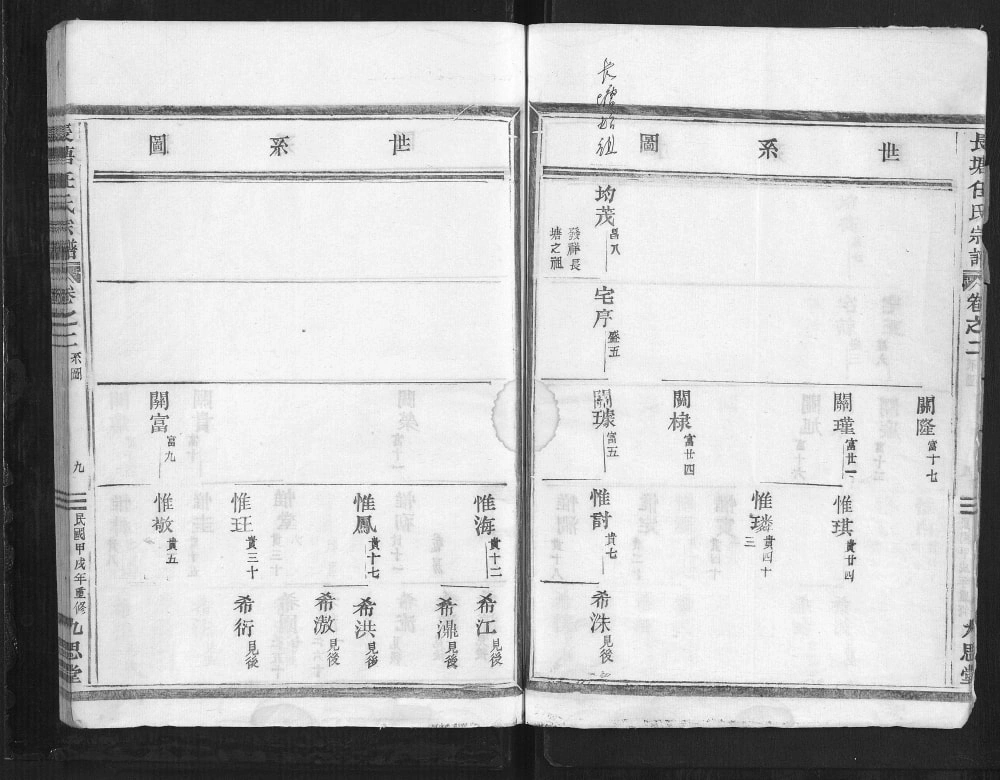 長塘任氏宗譜
卷之二
九思堂
長塘始祖
世系圖
均茂
昌八
發祥長
塘之祖
宅序
盛五
關隆
富十七
關瑾
富廿一
關棣
富廿四
關璩
富五
惟琪
貴廿四
惟璘
貴四十
三
惟討
貴七
希洙
見後
世系圖
關富
富九
惟海
貴十二
惟鳳
貴十七
惟玨
貴三十
惟敬
貴五
希江
見後
希濎
見後
希洪
見後
希激
見後
希衍
見後
長塘任氏宗譜
卷之二
系圖
九
民國甲戌年重修
九思堂